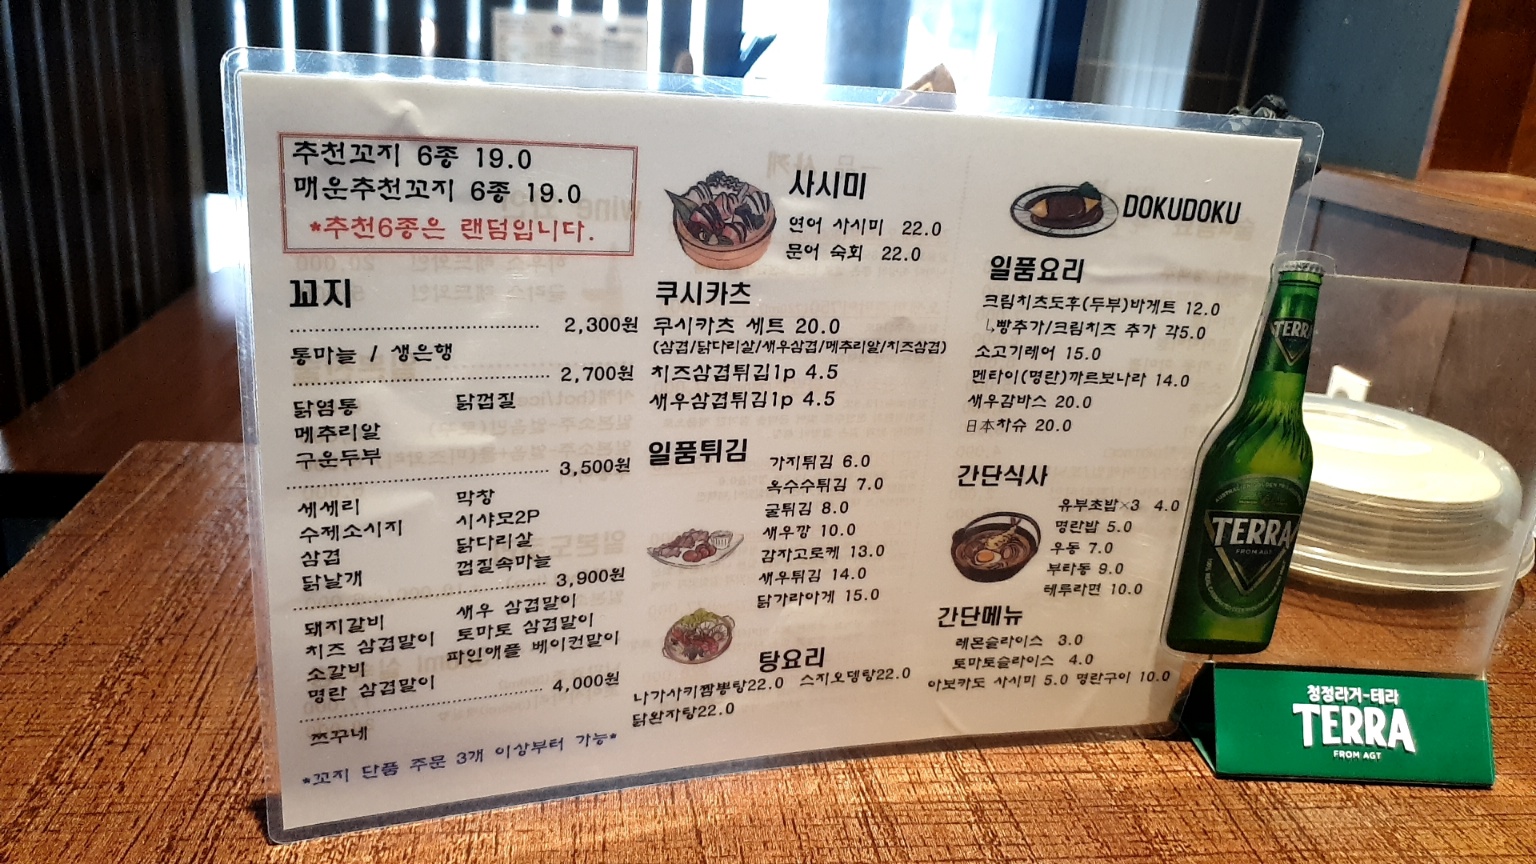 추천꼬지 6종 19.0
매운추천꼬지 6종 19.0
*추천6종은 랜덤입니다.
꼬지
2,300원
통마늘 / 생은행
2,700원
닭염통 닭껍질
메추리알
구운두부
3,500원
세세리 막창
수제소시지 시샤모2P
삼겹 닭다리살
닭날개 껍질속마늘
3,900원
돼지갈비 새우 삼겹말이
치즈 삼겹말이 토마토 삼겹말이
소갈비 파인애플 베이컨말이
명란 삼겹말이
4,000원
쯔꾸네
*꼬지 단품 주문 3개 이상부터 가능*
사시미
연어 사시미 22.0
문어 숙회 22.0
쿠시카츠
쿠시카츠 세트 20.0
(삼겹/닭다리살/새우삼겹/메추리알/치즈삼겹)
치즈삼겹튀김1p 4.5
새우삼겹튀김1p 4.5
일품튀김
가지튀김 6.0
옥수수튀김 7.0
굴튀김 8.0
새우깡 10.0
감자고로케 13.0
새우튀김 14.0
닭가라아게 15.0
탕요리
나가사키짬뽕탕22.0 스지오뎅탕22.0
닭완자탕22.0
DOKUDOKU
일품요리
크림치츠도후(두부)바게트 12.0
ㄴ빵추가/크림치즈 추가 각5.0
소고기레어 15.0
멘타이(명란)까르보나라 14.0
새우감바스 20.0
日本차슈 20.0
간단식사
유부초밥×3 4.0
명란밥 5.0
우동 7.0
부타동 9.0
테루라면 10.0
간단메뉴
레몬슬라이스 3.0
토마토슬라이스 4.0
아보카도 사시미 5.0 명란구이 10.0
TERRA
TERRA
FROM AGT
청정라거-테라
TERRA
FROM AGT